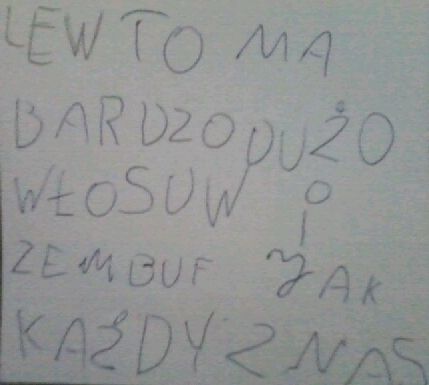 LEW TO MA
BARDZO DUŻO
WŁOSUW I
ZEMBUF JAK
KAŻDY Z NAS